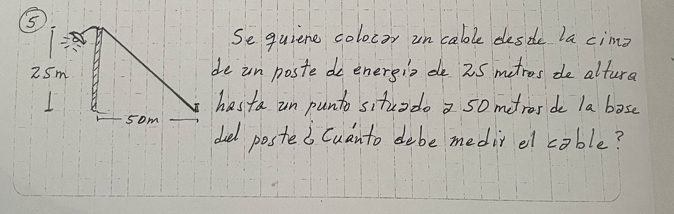 5
Se quiere colocar un cable desde la cima
25m
de un poste de energía de 25 metros de altura
hasta un punto situado a 50 metros de la base
50m
del poste ¿Cuánto debe medir el cable?